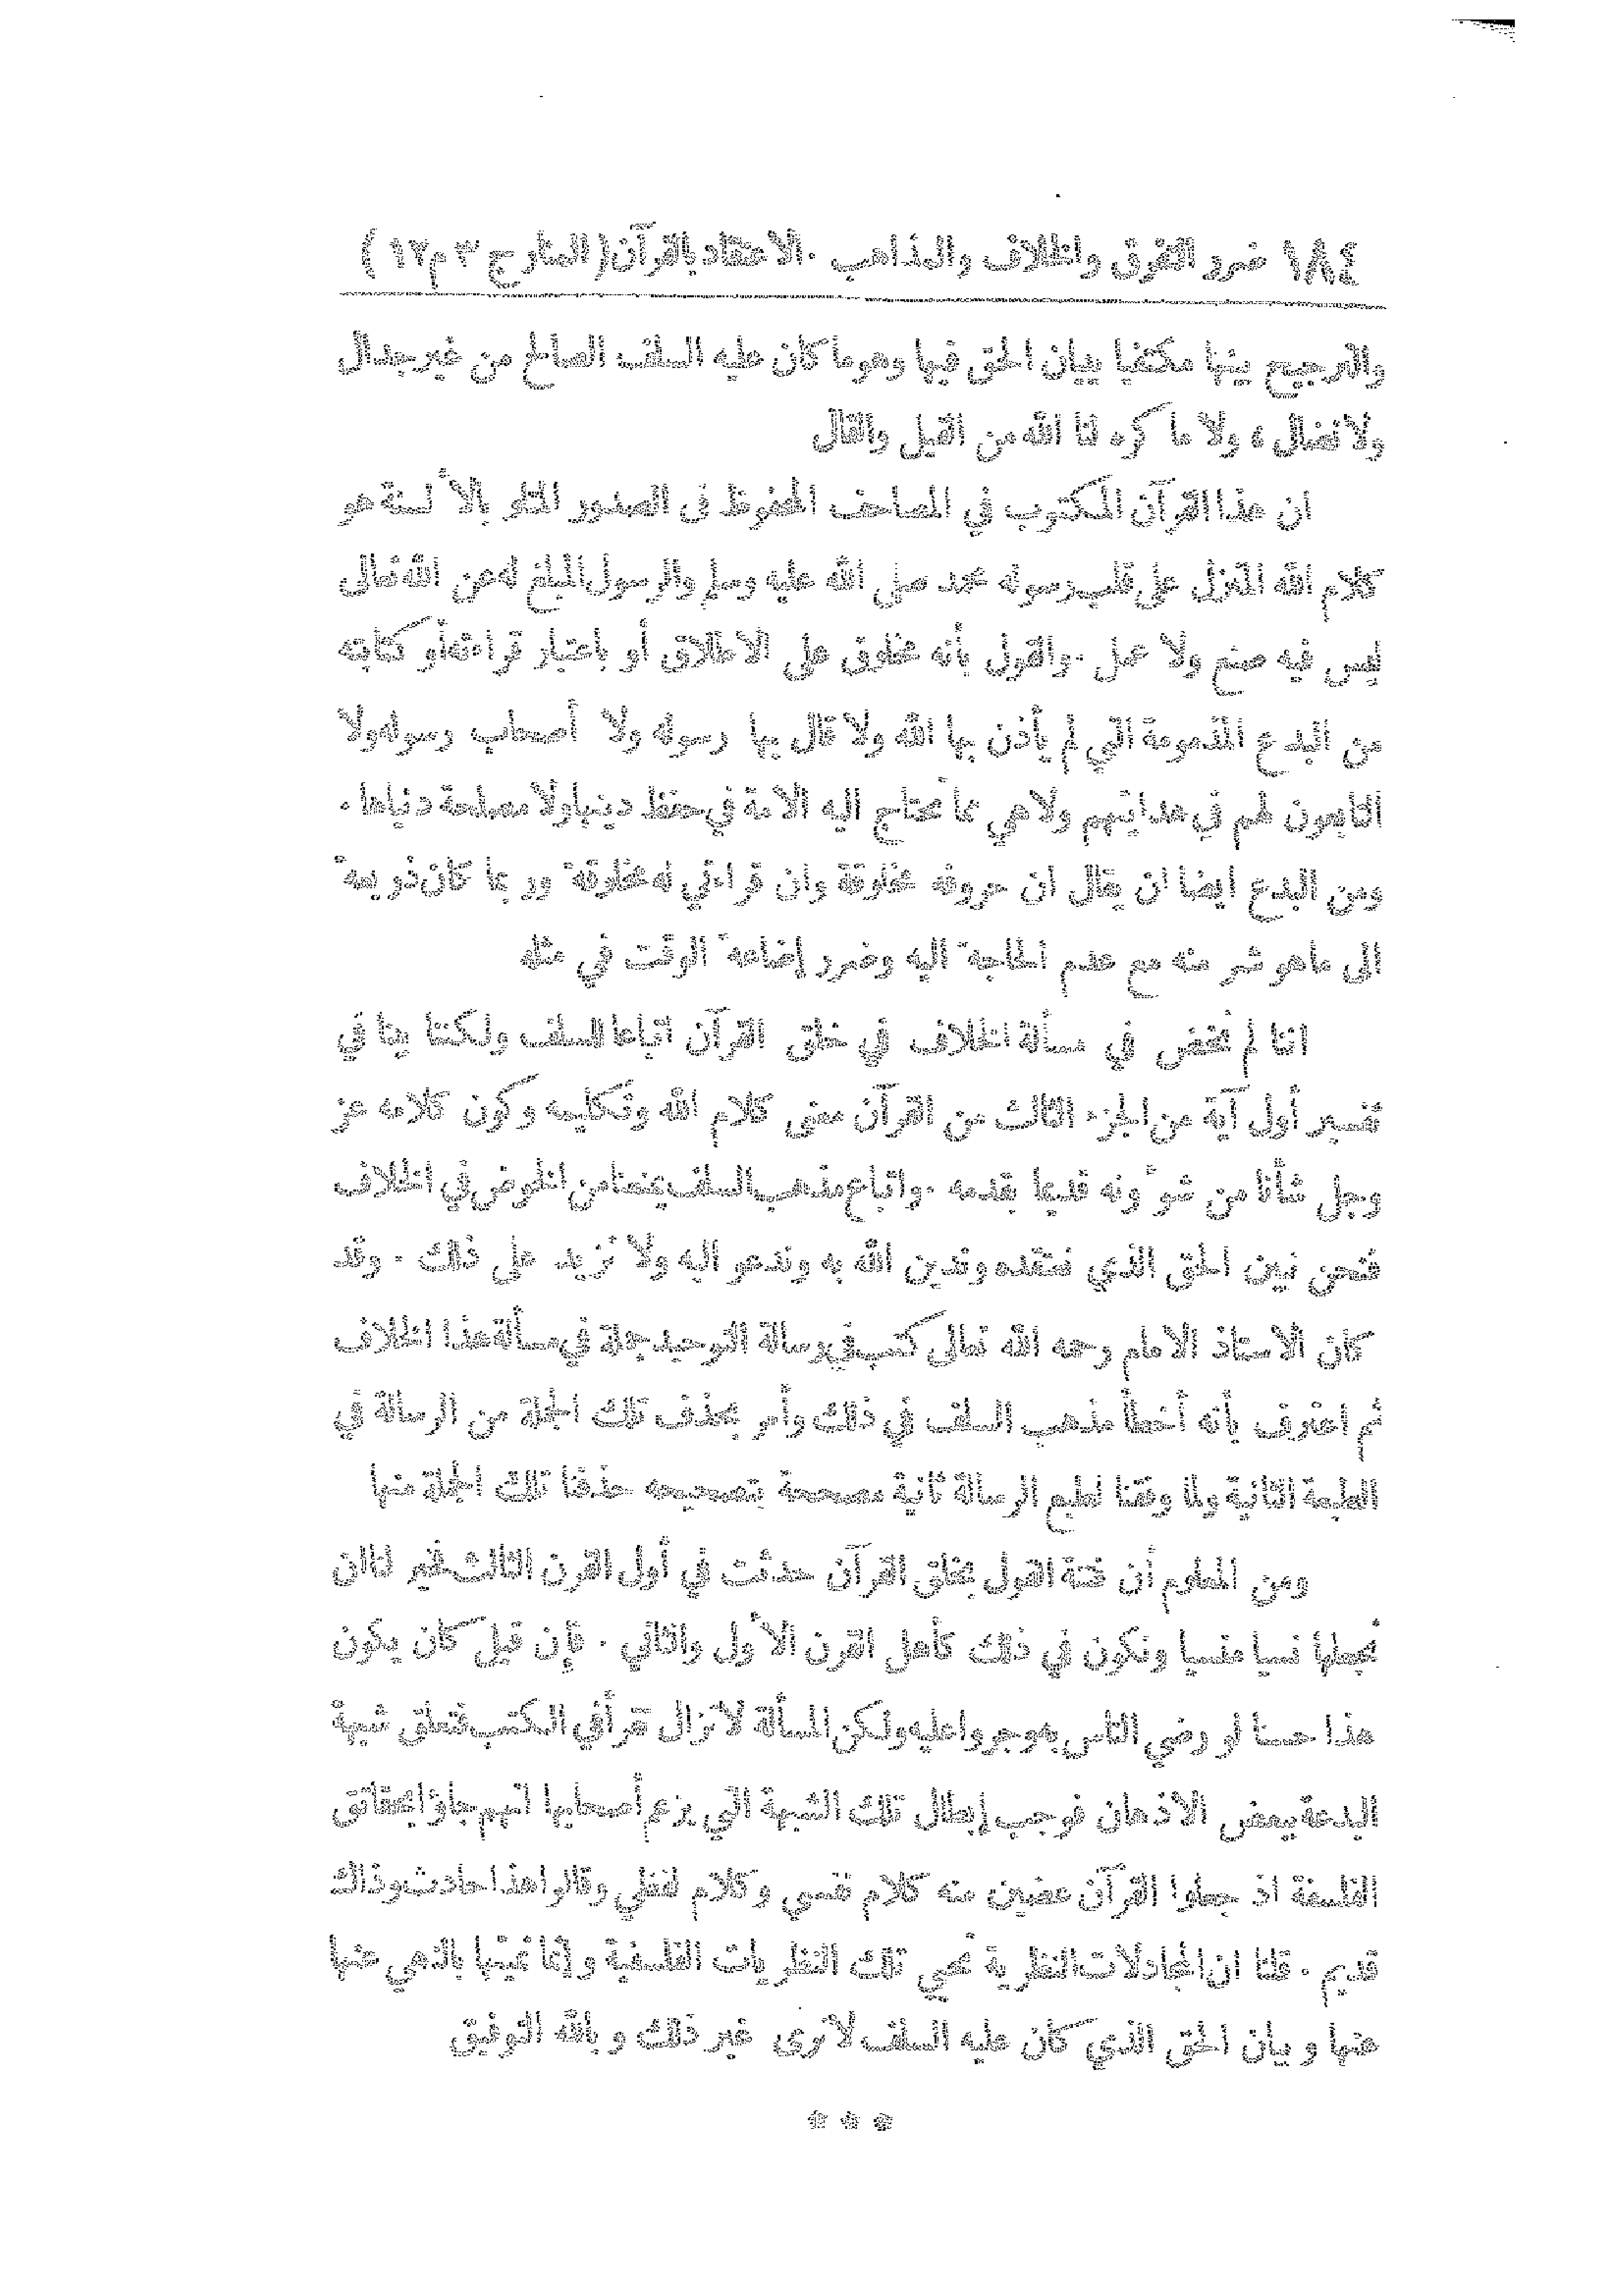 ١٨٤ ضرر التفرق والخلاف والمذاهب . الاعتقاد بالقرآن ( المنار ج ٣ م ١٢ )
والترجيح بينها مكتفيا ببيان الحق فيها وهو ما كان عليه السلف الصالح من غير جدال
ولا نضال ، ولا ما كره لنا الله من القيل والقال
ان هذا القرآن المكتوب في المصاحف المحفوظ في الصدور المتلو بالألسنة هو
كلام الله المنزل على قلب رسوله محمد صلى الله عليه وسلم والرسول المبلغ له عن الله تعالى
ليس فيه صنع ولا عمل . والقول بأنه مخلوق على الاطلاق أو باعتبار قراءته أو كتابته
من البدع المذمومة التي لم يأذن بها الله ولا قال بها رسوله ولا أصحاب رسوله ولا
التابعون لهم في هدايتهم ولا هي مما تحتاج اليه الامة في حفظ دينها ولا مصلحة دنياها .
ومن البدع ايضا ان يقال ان حروفه مخلوقة وان قراءتي له مخلوقة وربما كان ذريعة
الى ماهو شر منه مع عدم الحاجة اليه وضرر إضاعة الوقت في مثله
اننا لم نخض في مسألة الخلاف في خلق القرآن اتباعا للسلف ولكننا بينا في
تفسير أول آية من الجزء الثالث من القرآن معنى كلام الله وتكليمه وكون كلامه عز
وجل شأنا من شؤونه قديما بقدمه . واتباع مذهب السلف يمنعنا من الخوض في الخلاف
فنحن نبين الحق الذي نعتقده وندين الله به وندعو اليه ولا نزيد على ذلك . وقد
كان الاستاذ الامام رحمه الله تعالى كتب في رسالة التوحيد جملة في مسألة هذا الخلاف
ثم اعترف بأنه أخطأ مذهب السلف في ذلك وأمر بحذف تلك الجملة من الرسالة في
الطبعة الثانية ولما وفقنا لطبع الرسالة ثانية مصححة بتصحيحه حذفنا تلك الجملة منها
ومن المعلوم أن فتنة القول بخلق القرآن حدثت في أول القرن الثالث فخير لنا ان
نجعلها نسيا منسيا ونكون في ذلك كأهل القرن الأول والثاني . فإن قيل كان يكون
هذا حسنا لو رضي الناس به وجروا عليه ولكن المسألة لا تزال تقرأ في الكتب فتعلق شبهة
البدعة ببعض الاذهان فوجب إبطال تلك الشبهة التي يزعم أصحابها انهم جاؤا بحقائق
الفلسفة اذ جعلوا القرآن عضين منه كلام نفسي وكلام لفظي وقالوا هذا حادث وذاك
قديم . قلنا ان المجادلات النظرية تحيي تلك النظريات الفلسفية وإنما نميتها بالنهي عنها
عنها وبيان الحق الذي كان عليه السلف لا نرى غير ذلك وبالله التوفيق
* * *